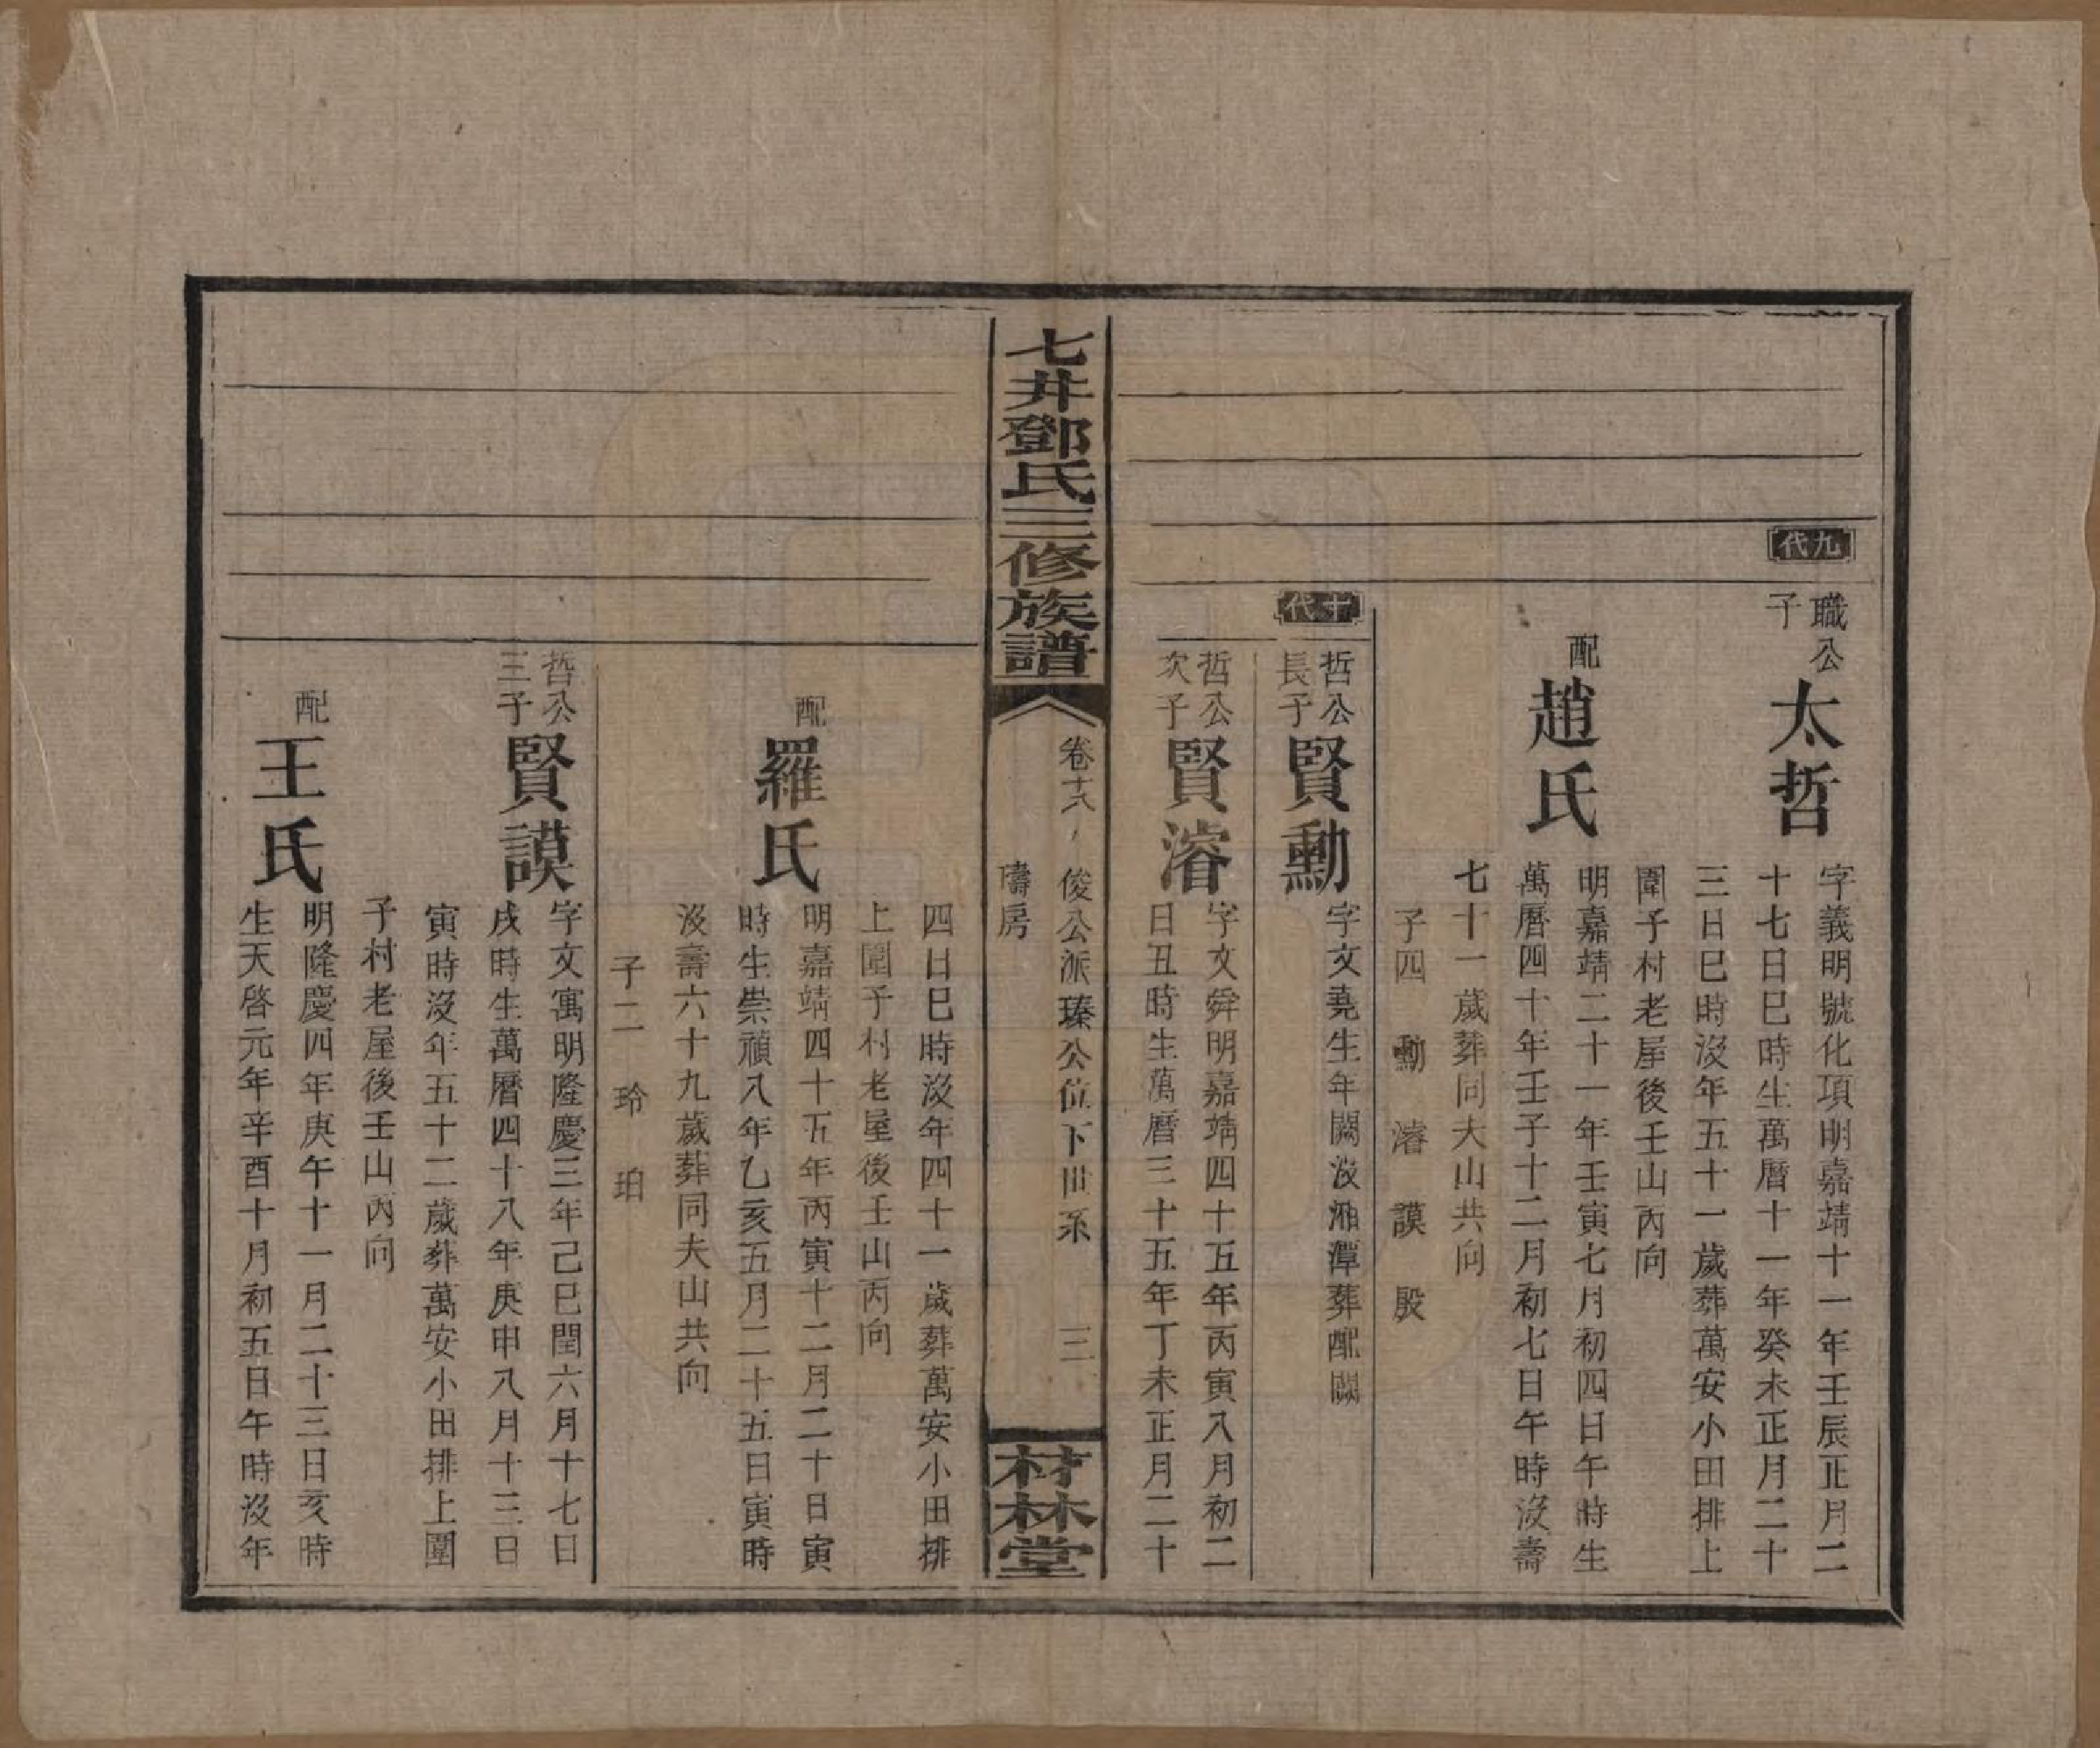 九代
職公子
太哲
字義明號化項明嘉靖十一年壬辰正月二
十七日巳時生萬曆十一年癸未正月二十
三日巳時沒年五十一歲葬萬安小田排上
圍子村老屋後壬山丙向
配
趙氏
明嘉靖二十一年壬寅七月初四日午時生
萬曆四十年壬子十二月初七日午時沒壽
七十一歲葬同夫山共向
子四 勳 濬 謨 殷
十代
哲公長子
賢勳
字文堯生年闕沒湘潭葬配闕
哲公次子
賢濬
字文舜明嘉靖四十五年丙寅八月初二
日丑時生萬曆三十五年丁未正月二十
七井鄧氏三修族譜
卷十八
俊公派瑧公位下世系 三
禱房
材林堂
四日巳時沒年四十一歲葬萬安小田排
上圍子村老屋後壬山丙向
配
羅氏
明嘉靖四十五年丙寅十二月二十日寅
時生崇禎八年乙亥五月二十五日寅時
沒壽六十九歲葬同夫山共向
子二 玲 珀
哲公三子
賢謨
字文寓明隆慶三年己巳閏六月十七日
戌時生萬曆四十八年庚申八月十三日
寅時沒年五十二歲葬萬安小田排上圍
子村老屋後壬山丙向
配
王氏
明隆慶四年庚午十一月二十三日亥時
生天啓元年辛酉十月初五日午時沒年